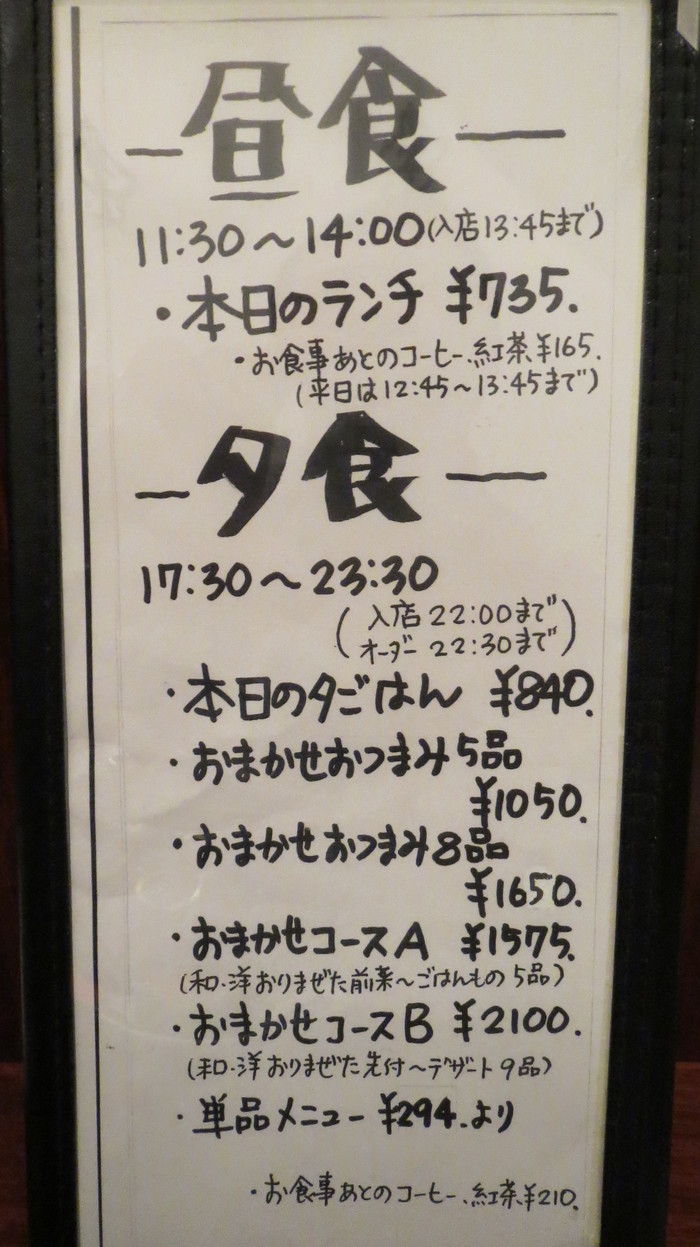 昼食
11:30〜14:00(入店13:45まで)
・本日のランチ ¥735.
・お食事あとのコーヒー、紅茶¥165.
(平日は12:45〜13:45まで)
夕食
17:30〜23:30
(入店22:00まで
オーダー22:30まで)
・本日の夕ごはん ¥840.
・おまかせおつまみ5品
¥1050.
・おまかせおつまみ8品
¥1650.
・おまかせコースA ¥1575.
(和・洋おりまぜた前菜〜ごはんもの5品)
・おまかせコースB ¥2100.
(和・洋おりまぜた先付〜デザート9品)
・単品メニュー ¥294.より
・お食事あとのコーヒー、紅茶¥210.